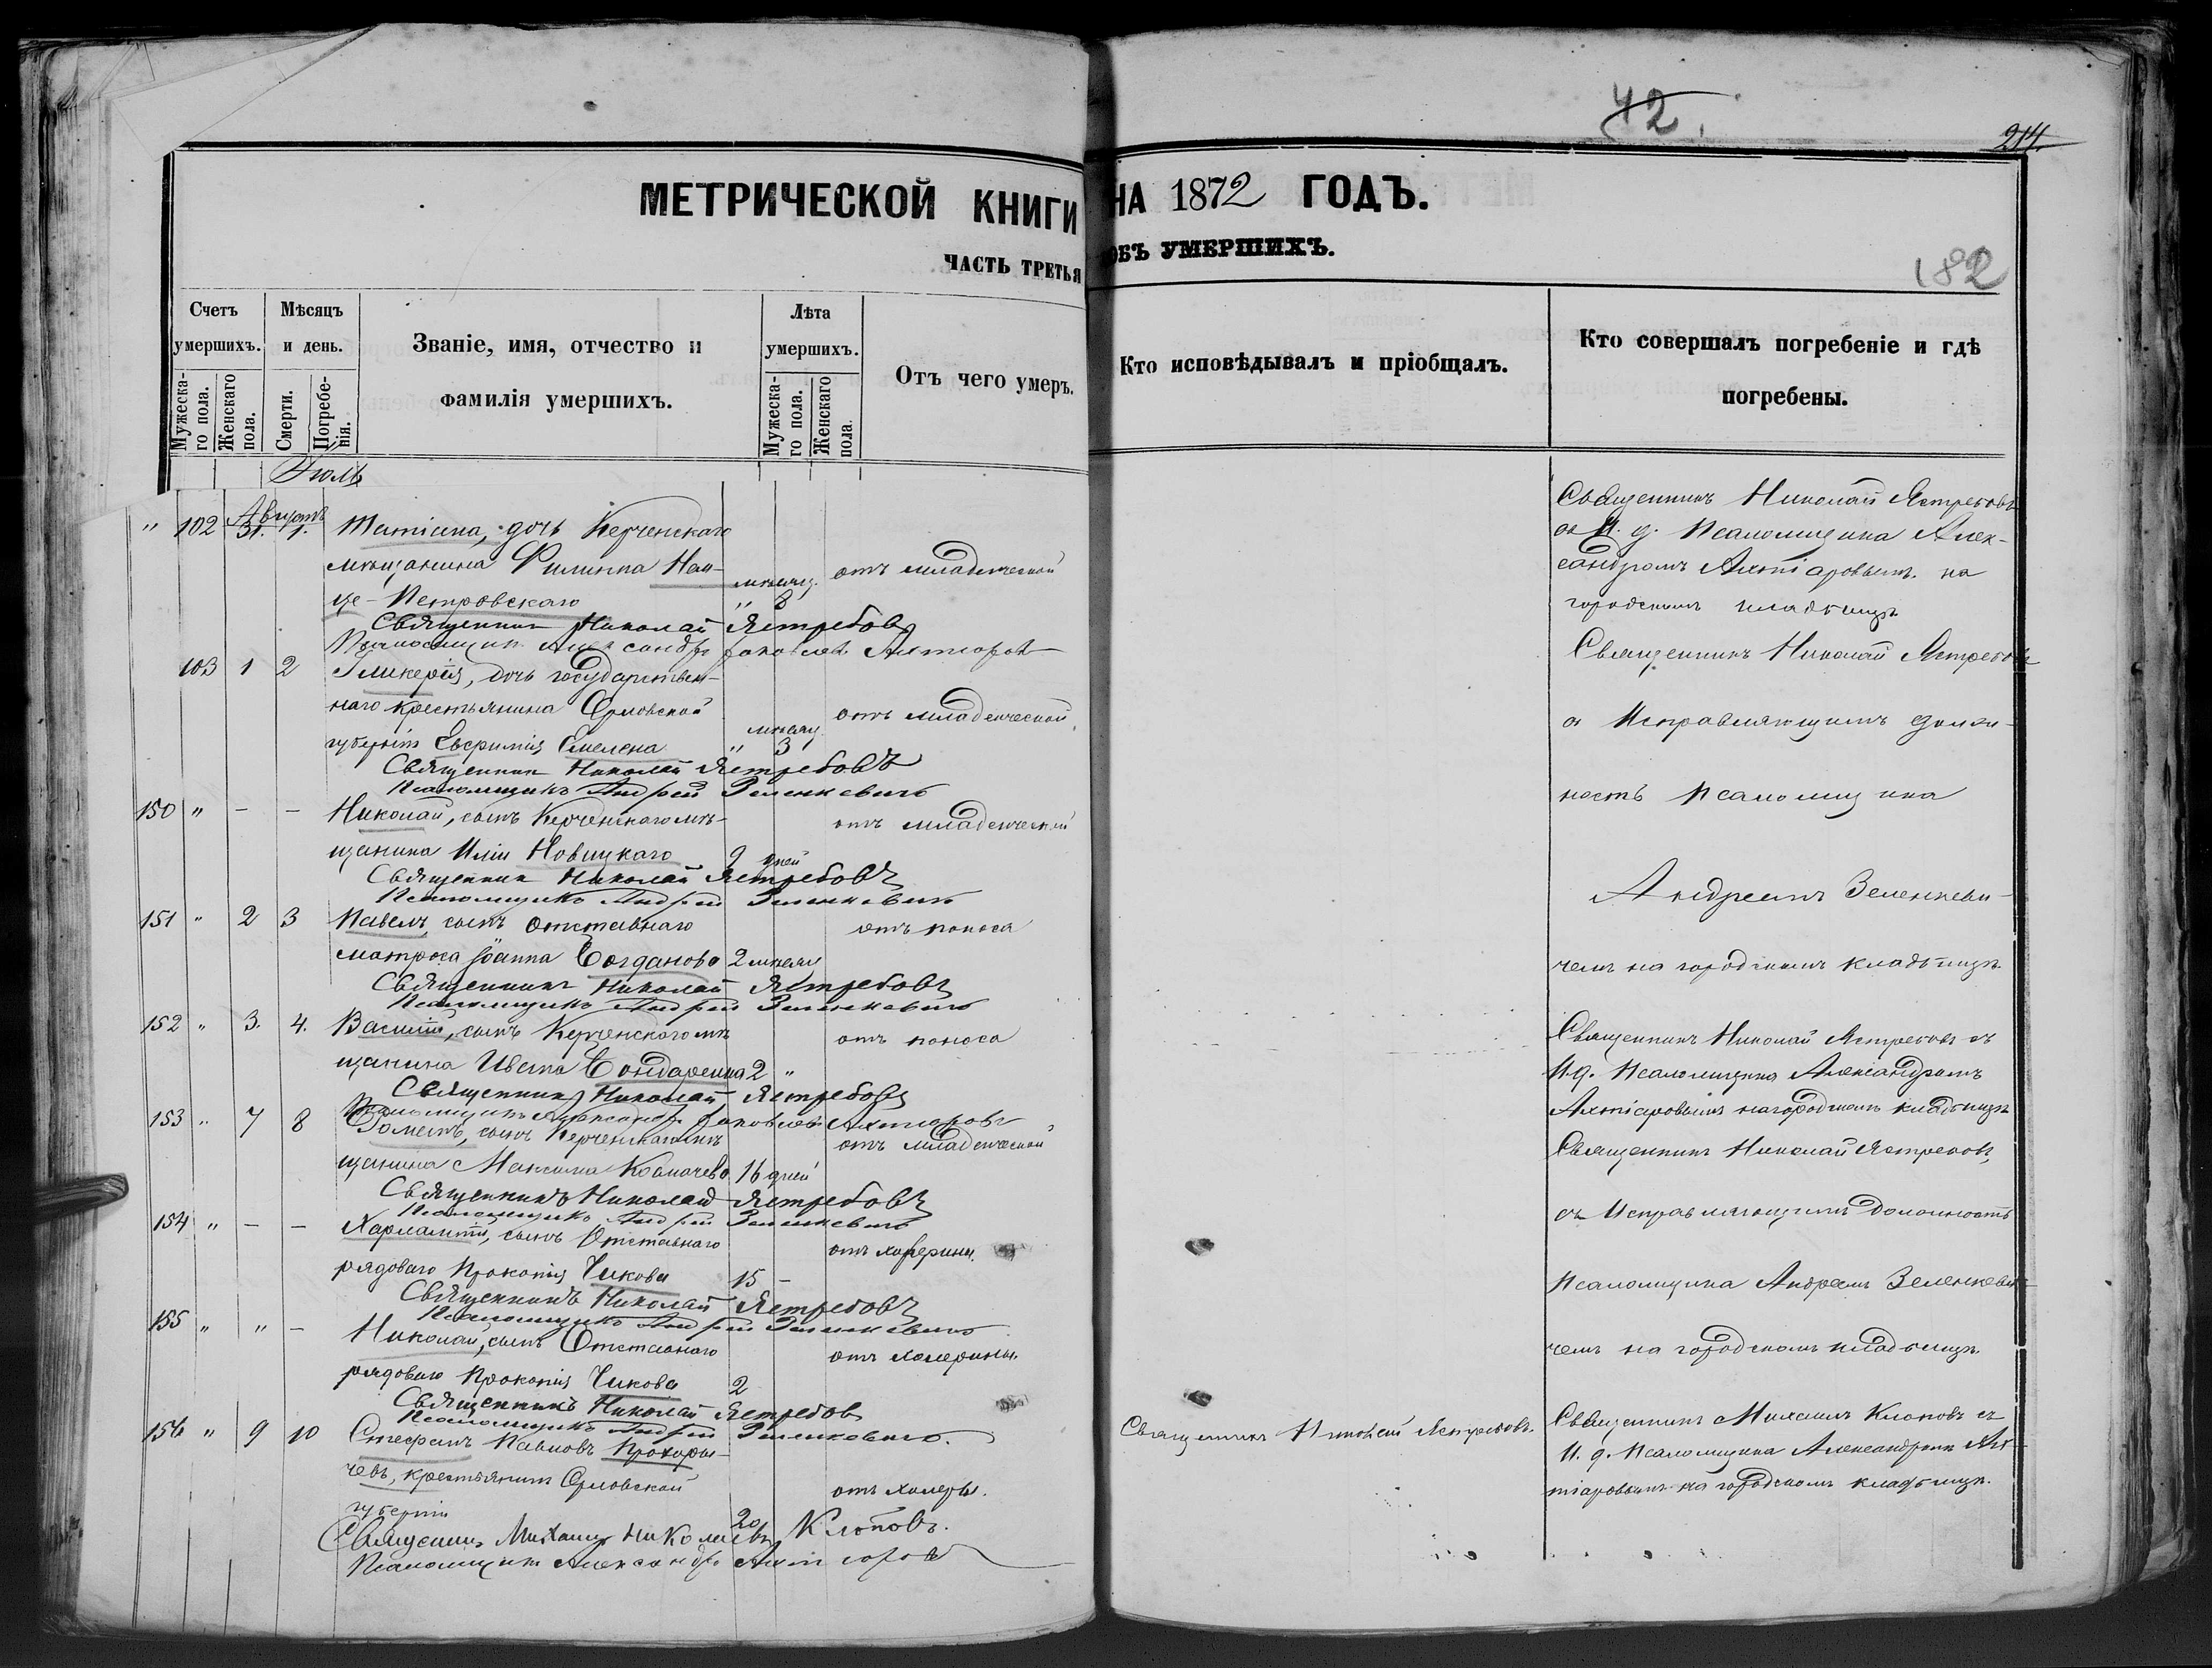 42.
214.
МЕТРИЧЕСКОЙ КНИГИ НА 1872 ГОДЪ.
ЧАСТЬ ТРЕТЬЯ ОБЪ УМЕРШИХЪ.
182
Счетъ умершихъ.
Мужескаго пола.
Женскаго пола.
Мѣсяцъ и день.
Смерти.
Погребенія.
Званіе, имя, отчество и фамилія умершихъ.
Лѣта умершихъ.
Мужескаго пола.
Женскаго пола.
Отъ чего умеръ.
Кто исповѣдывалъ и пріобщалъ.
Кто совершалъ погребеніе и гдѣ погребены.
Іюль
Августъ
" 102 31. 1. Татіана, дочь Керченскаго
мѣщанина Филиппа Нац-
це-Петровскаго
мѣсяц. " 8
отъ младенческой
Священникъ Николай Ястребовъ
Псаломщикъ Александръ Яковлевъ Ахтіаровъ
Священникъ Николай Ястребовъ
съ И. д. Псаломщика Алек-
сандромъ Ахтіаровымъ на
городскомъ кладбищѣ
103 1 2 Гликерія, дочь государствен-
наго крестьянина Орловской
губерніи Евфимія Емелена
мѣсяц " 3
отъ младенческой
Священник Николай Ястребовъ
Псаломщикъ Андрей Зеленкевичъ
Священникъ Николай Ястребовъ
съ Исправляющимъ долж-
ность Псаломщика
Андреемъ Зеленкеви-
чемъ на городскомъ кладбищѣ
150 " - - Николай, сынъ Керченскаго мѣ-
щанина Иліи Новицкаго
9 дней
отъ младенческой
Священник Николай Ястребовъ
Псаломщикъ Андрей Зеленкевичъ
151 " 2 3 Павелъ, сынъ Отставнаго
матроса Іоанна Богданова 2 мѣсяц
отъ поноса
Священникъ Николай Ястребовъ
Псаломщикъ Андрей Зеленкевичъ
152 " 3. 4. Василій, сынъ Керченскаго мѣ
щанина Ивана Бондаренка 2 "
отъ поноса
Священникъ Николай Ястребовъ
Псаломщикъ Александръ Яковлевъ Ахтіаровъ
Священникъ Николай Ястребовъ съ
И.д. Псаломщика Александромъ
Ахтіаровымъ на городскомъ кладбищѣ
153 " 7 8 сынъ Керченскаго мѣ
щанина Максима 16 дней
отъ младенческой
Священникъ Николай Ястребовъ
Псаломщикъ Андрей Зеленкевичъ
Священникъ Николай Ястребовъ,
съ Исправляющимъ Должность
Псаломщика Андреемъ Зеленкеви-
чемъ на городскомъ кладбищѣ.
154 " - - Харлампій, сынъ Отставнаго
рядоваго Прокопія Чикова 15 -
отъ холерины.
Священникъ Николай Ястребовъ
Псаломщикъ Андрей Зеленкевичъ
155 " " - Николай, сынъ Отставнаго
рядоваго Прокопія Чикова 2
отъ холерины.
Священникъ Николай Ястребовъ
Псаломщикъ Андрей Зеленкевичъ.
156 " 9 10 Стефанъ Павловъ Прохоры-
чевъ, крестьянинъ Орловской
губерніи
20
отъ холеры.
Священникъ Николай Ястребовъ.
Священникъ Михаилъ Клоповъ съ
И. д. Псаломщика Александромъ Ах-
тіаровымъ на городскомъ кладбищѣ.
Священникъ Михаилъ Николаевъ Клоповъ.
Псаломщикъ Александръ Ахтіаровъ